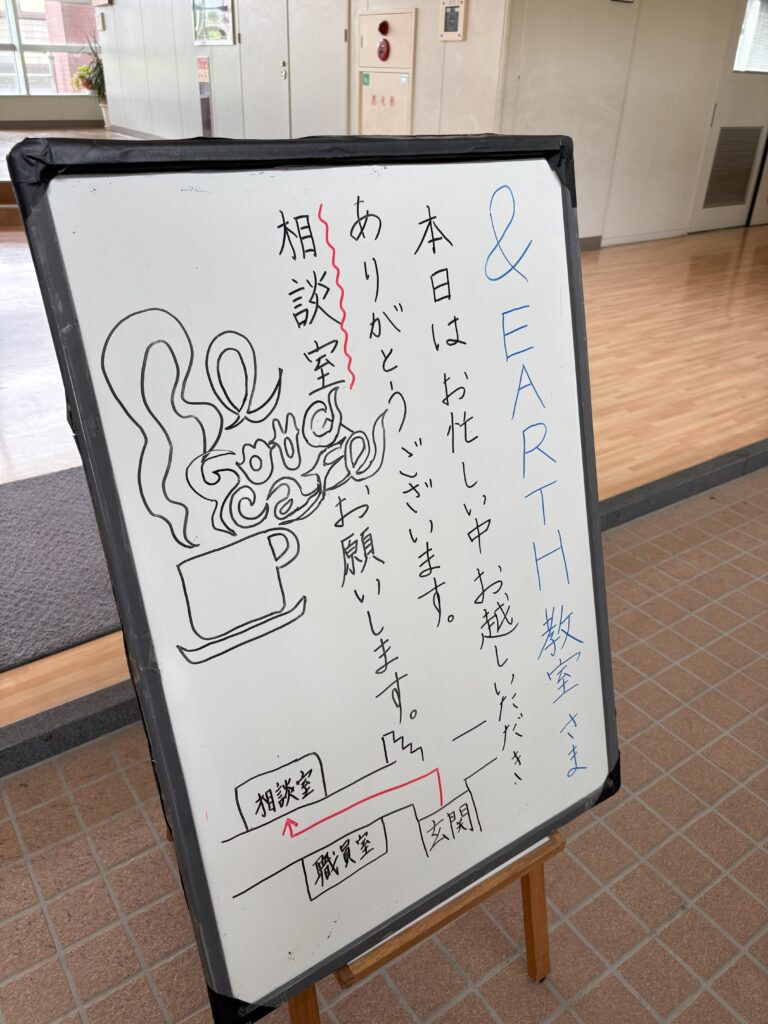 &EARTH教室さま
本日はお忙しい中お越しいただき、
ありがとうございます。
相談室
お願いします。
Be
Good
cafe
相談室
職員室
玄関
消火栓